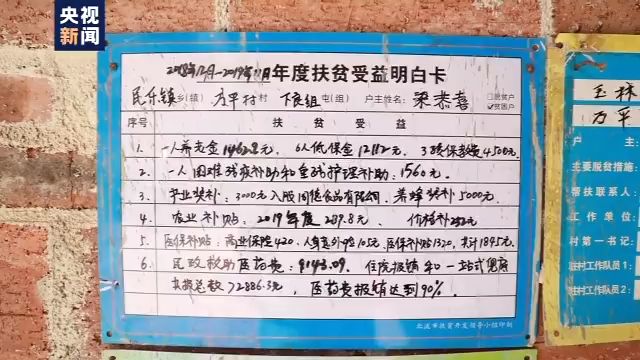 央视
新闻
2018年12月-2019年11月年度扶贫受益明白卡
民乐镇乡(镇) 方平村村 下良组屯(组) 户主姓名 梁恭喜 □脱贫户
☑贫困户
序号 扶贫受益
1. 一人养老金1462.2元, 6人低保金12112元 3
2. 一人困难残疾补助和重残护理补助:1560元.
3. 产业奖补:3000元入股 食品有限公司, 养蜂奖补5000元.
4. 农业补贴, 2019年度289.8元,
5 医保补贴:商业保险420, 人身意外险105元, 医保补贴1320, 共计1845元.
6. 民政救助医药费: 9143.09. 住院报销和一站式兜底
共报总数72886.3元, 医药费报销达到90%.
北流市扶贫开发领导小组印制
玉林
万平
户主:
主要脱贫措施:
帮扶联系人:
工作单位:
村第一书记:
驻村工作队员1:
驻村工作队员2: